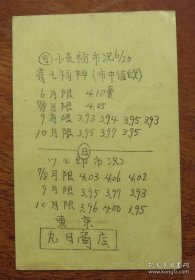 小麦粉市況 6/20
6月限 4.10
7/8月限 4.05
9月限 3.93 3.94 3.95 3.93
10月限 3.95 3.97 3.95
日
ツル印市況
7/8月限 4.03 4.06 4.02
9月限 3.95 3.97 3.93
10月限 3.96 4.00 3.95
東京
九日商店